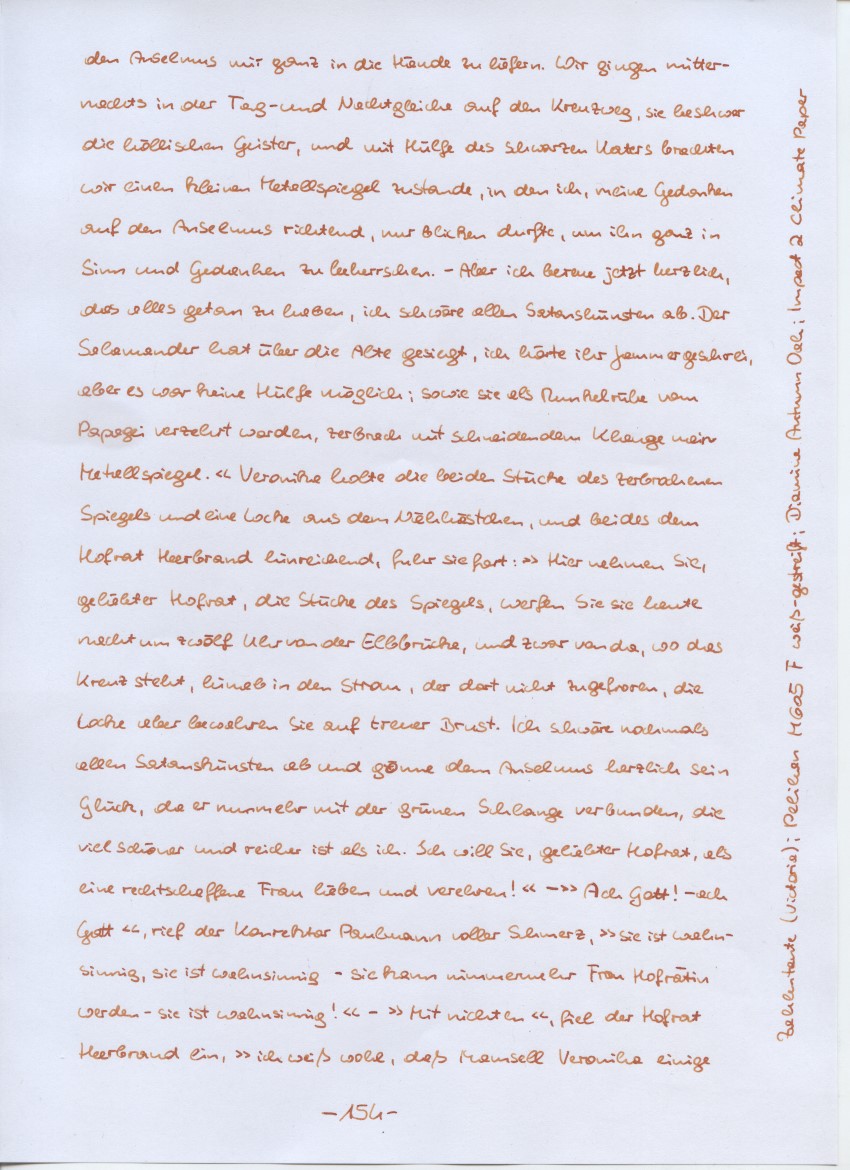 den Anselmus mir ganz in die Hände zu liefern. Wir gingen mitter-
nachts in der Tag-und Nachtgleiche auf den Kreuzweg, sie beshwor
die höllischen Geister, und mit Hülfe des schwarzen Katers brachten
wir einen kleinen Metallspiegel zustande, in den ich, meine Gedanken
auf den Anselmus richtend, nur blicken durfte, um ihn ganz in
Sinn und Gedanken zu beherrschen. - Aber ich bereue jetzt herzlich,
das alles getan zu haben, ich schwöre allen Satanskünsten ab. Der
Salamander hat über die Alte gesiegt, ich hörte ihr Jammergeschrei,
aber es war keine Hülfe möglich; sowie sie als Runkelrübe vom
Papagei verzehrt worden, zerbrach mit schneidendem Klange mein
Metallspiegel.« Veronika holte die beiden Stücke des zerbrochenen
Spiegels und eine Locke aus dem Nähkästchen, und beides dem
Hofrat Heerbrand hinreichend, fuhr sie fort: »Hier nehmen Sie,
geliebter Hofrat, die Stücke des Spiegels, werfen Sie sie heute
nacht um zwölf Uhr von der Elbbrücke, und zwar von da, wo das
Kreuz steht, hinab in den Strom, der dort nicht zugefroren, die
Locke aber bewahren Sie auf treuer Brust. Ich schwöre nochmals
allen Satanskünsten ab und gönne dem Anselmus herzlich sein
Glück, da er nunmehr mit der grünen Schlange verbunden, die
viel schöner und reicher ist als ich. Ich will Sie, geliebter Hofrat, als
eine rechtschaffene Frau lieben und verehren!« -»Ach Gott! - ach
Gott«, rief der Konrektor Paulmann voller Schmerz, »sie ist wahn-
sinnig, sie ist wahnsinnig - sie kann nimmermehr Frau Hofrätin
werden - sie ist wahnsinnig!« - »Mit nichten«, fiel der Hofrat
Heerbrand ein, »ich weiß wohl, daß Mamsell Veronika einige
-154-
Zahlentante (Victoria); Pelikan M605 F weiß-gestreift; Diamine Autumn Oak; Impact 2 Climate Paper